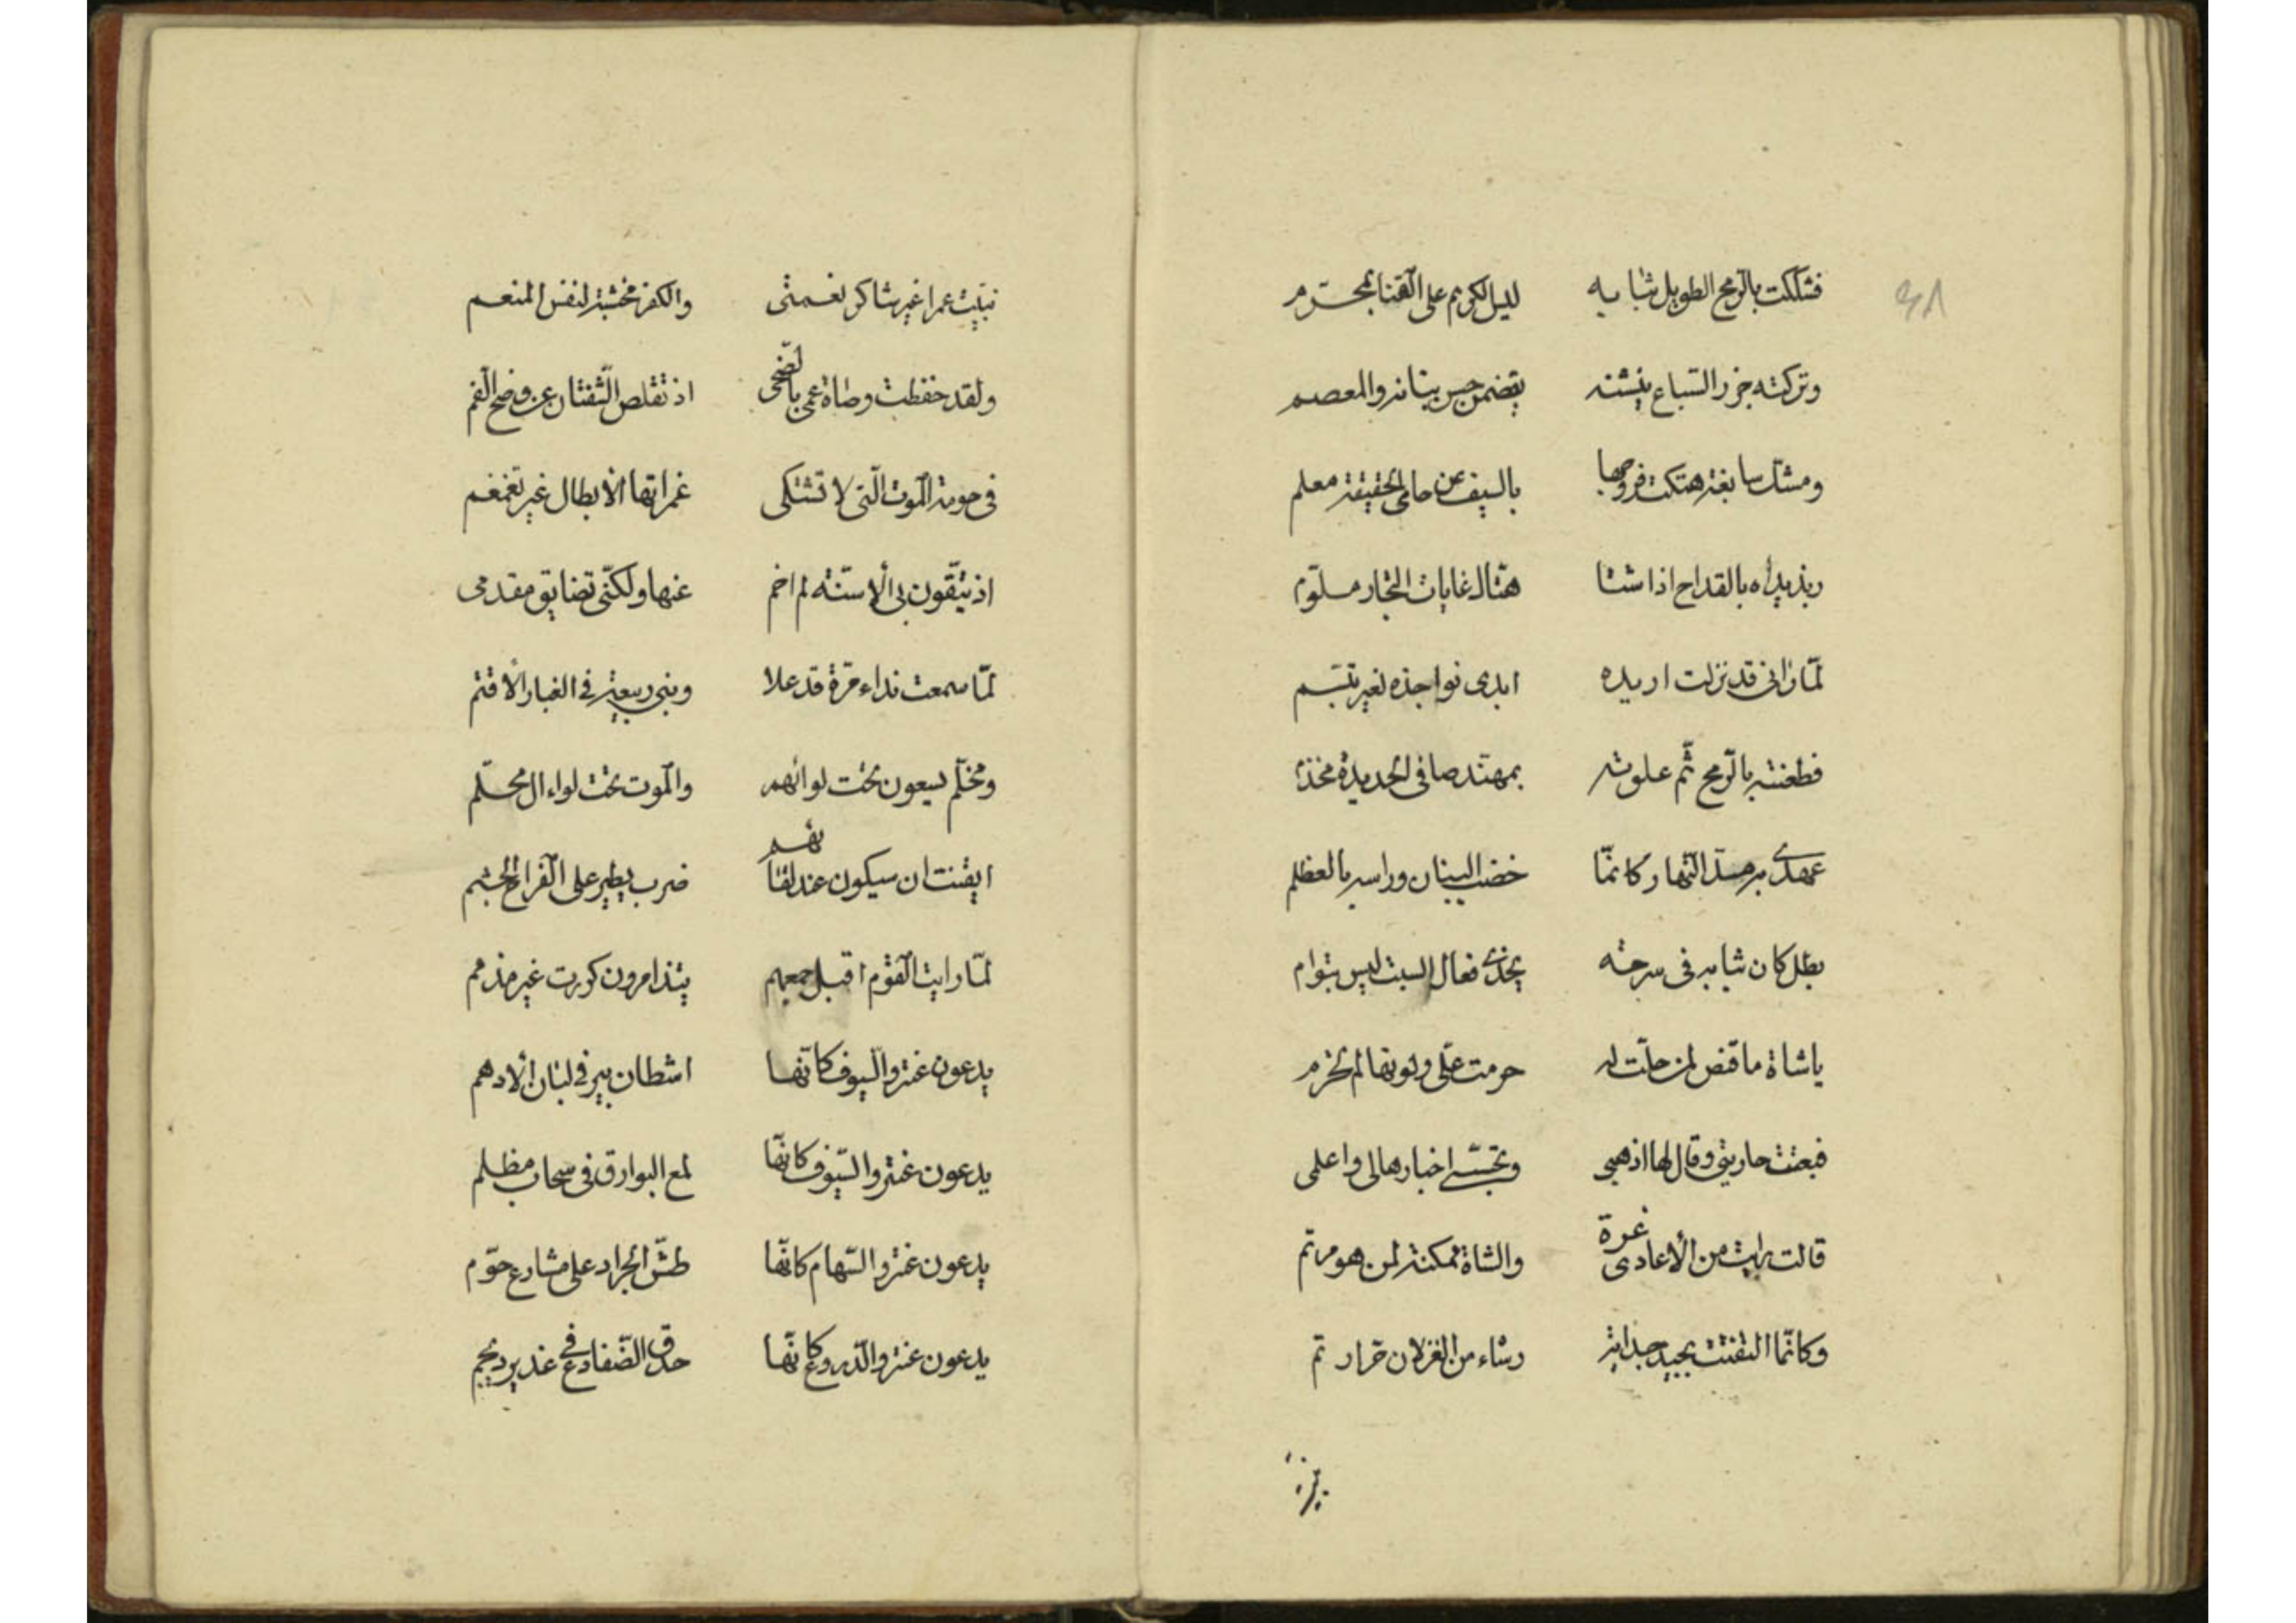 فشككت بالرمح الطويل ثيابه ليس الكريم على القنا بمحرم
وتركته جزر السباع ينشنه يقضمن حسن بنانه والمعصم
ومشك سابغة هتكت فروجها بالسيف عن حامى الحقيقة معلم
ربذ يداه بالقداح اذا شتا هتاك غايات التجار ملوم
لما رانى قد نزلت اريده ابدى نواجذه لغير تبسم
فطعنته بالرمح ثم علوته بمهند صافى الحديدة مخذم
عهدى به مد النهار كانما خضب البنان وراسه بالعظلم
بطل كان ثيابه فى سرحة يحذى نعال السبت ليس بتوام
ياشاة ما قنص لمن حلت له حرمت على ولوتها لم تحرم
فبعثت جاريتى وقال لها اذهبى وتجسسى اخبارها لى واعلمى
قالت رايت من الأعادى غرة والشاة ممكنة لمن هو مرتم
وكانما التفتت بجيد جداية رشاء من الغزلان حرار تم
نبيت عمرا غير شاكر نعمتى والكفر مخبثة لنفس المنعم
ولقد حفظت وصاة عمى بالضحى اذ تقلص الشفتان عن وضح الفم
فى حومة الموت التى لا تشتكى غمراتها الأبطال غير تغمغم
اذ يتقون بى الأسنة لم اخم عنها ولكنى تضايق مقدمى
لما سمعت نداء مرة قد علا وبنى ربيعة فى الغبار الأقتم
ومحلم يسعون تحت لوائهم والموت تحت لواء ال محلم
ايقنت ان سيكون عند لقائهم ضرب يطير على الفراخ الجثم
لما رايت القوم اقبل جمعهم يتذامرون كررت غير مذمم
يدعون عنتر والسيوف كانها اشطان بير فى لبان الأدهم
يدعون عنتر والسيوف كانها لمع البوارق فى سحاب مظلم
يدعون عنتر والسهام كانها طش الجراد على مشارع حوم
يدعون عنتر والدروع كانها حدق الضفادع فى غدير ديجم